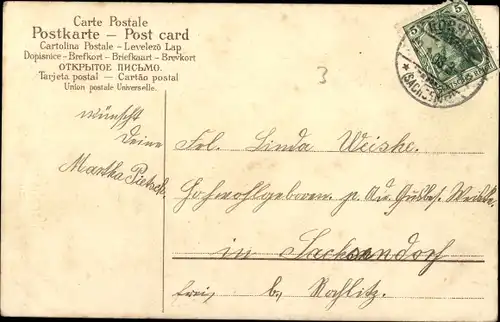 Carte Postale
Postkarte — Post card
Cartolina Postale - Levelező Lap
Dopisnice - Brefkort - Briefkaart - Brevkort
ОТКРЫТОЕ ПИСЬМО.
Tarjeta postal - Cartão postal
Union postale Universelle.
3
5 5
wünscht
Deine
Martha
Frl. Linda Weiske.
Hohwohlgeboren. Gutsbes. Weiske
in Sachsendorf
frei, b, Rochlitz.